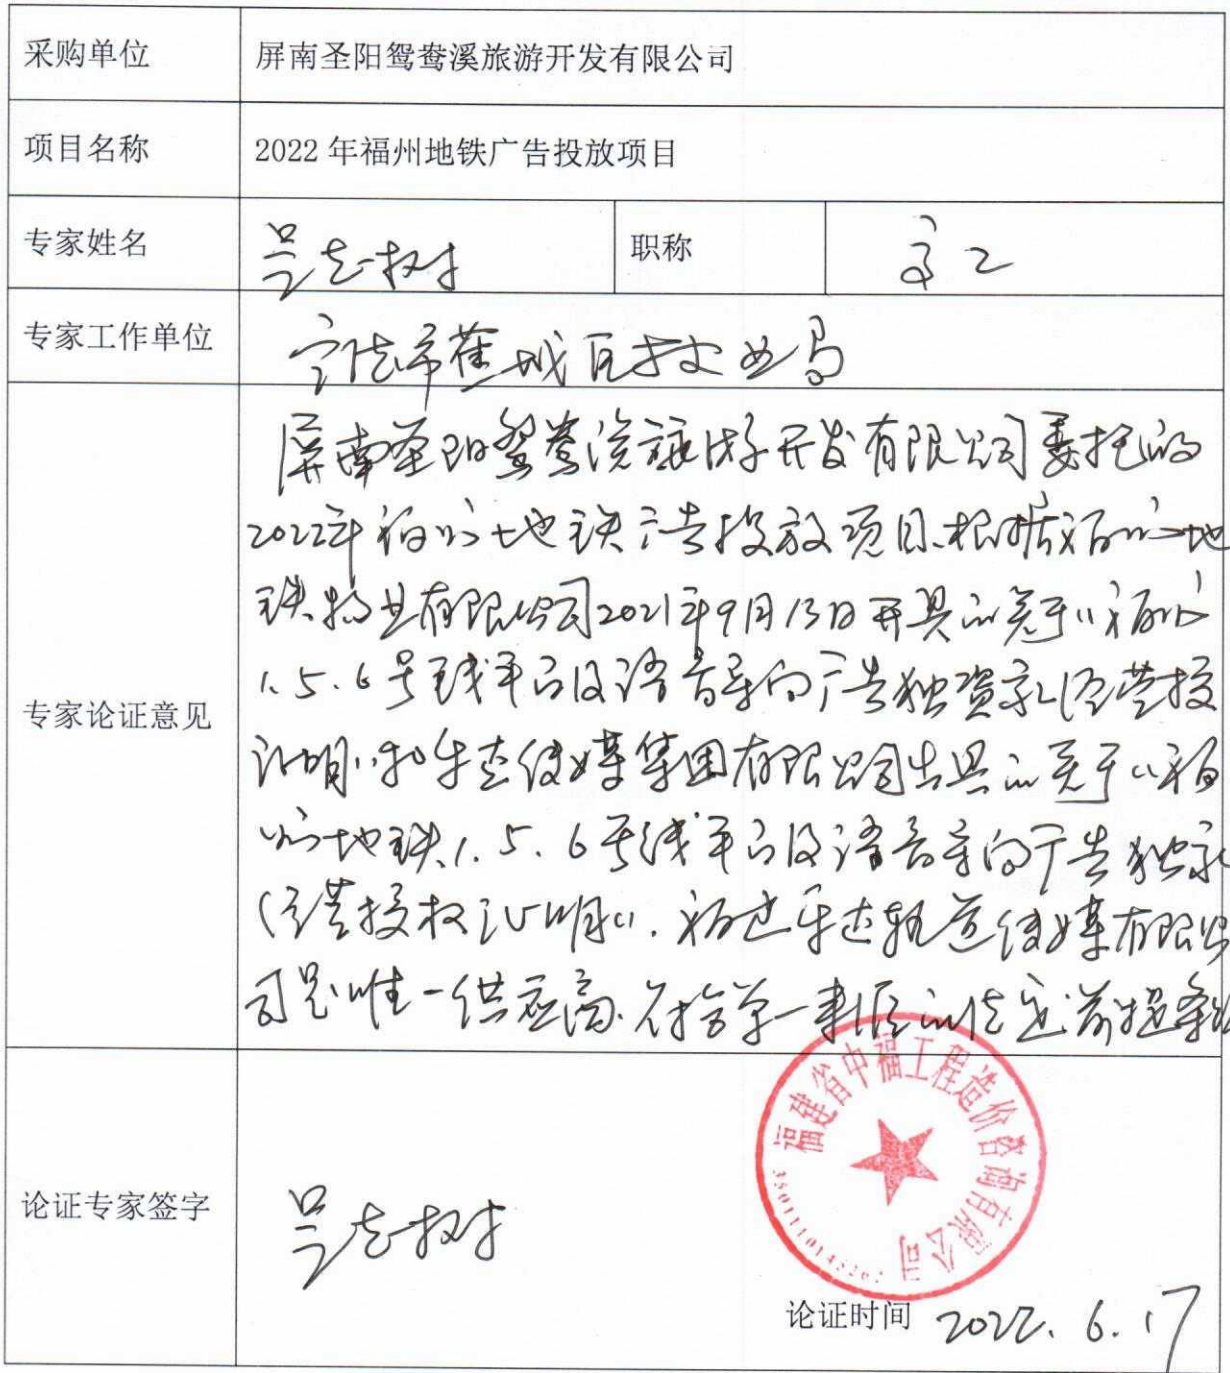 采购单位 屏南圣阳鸳鸯溪旅游开发有限公司
项目名称 2022年福州地铁广告投放项目
专家姓名 吴志树 职称 高工
专家工作单位 宁德市蕉城区林业局
屏南圣阳鸳鸯溪旅游开发有限公司委托的
2022年福州地铁广告投放项目.根据福州地
铁物业有限公司2021年9月13日开具的关于“福州
1.5.6号线平面及语音导向广告独资家经营授
证明”和华杰传媒集团有限公司出具的关于“福
州地铁1.5.6号线平面及语音导向广告独家
经营授权证明”.福建华达轨道传媒有限公
专家论证意见
司是唯一供应商.符合单一来源的法定前提条件
福建省中福工程造价咨询有限公司
论证专家签字 吴志树
论证时间 2022.6.17